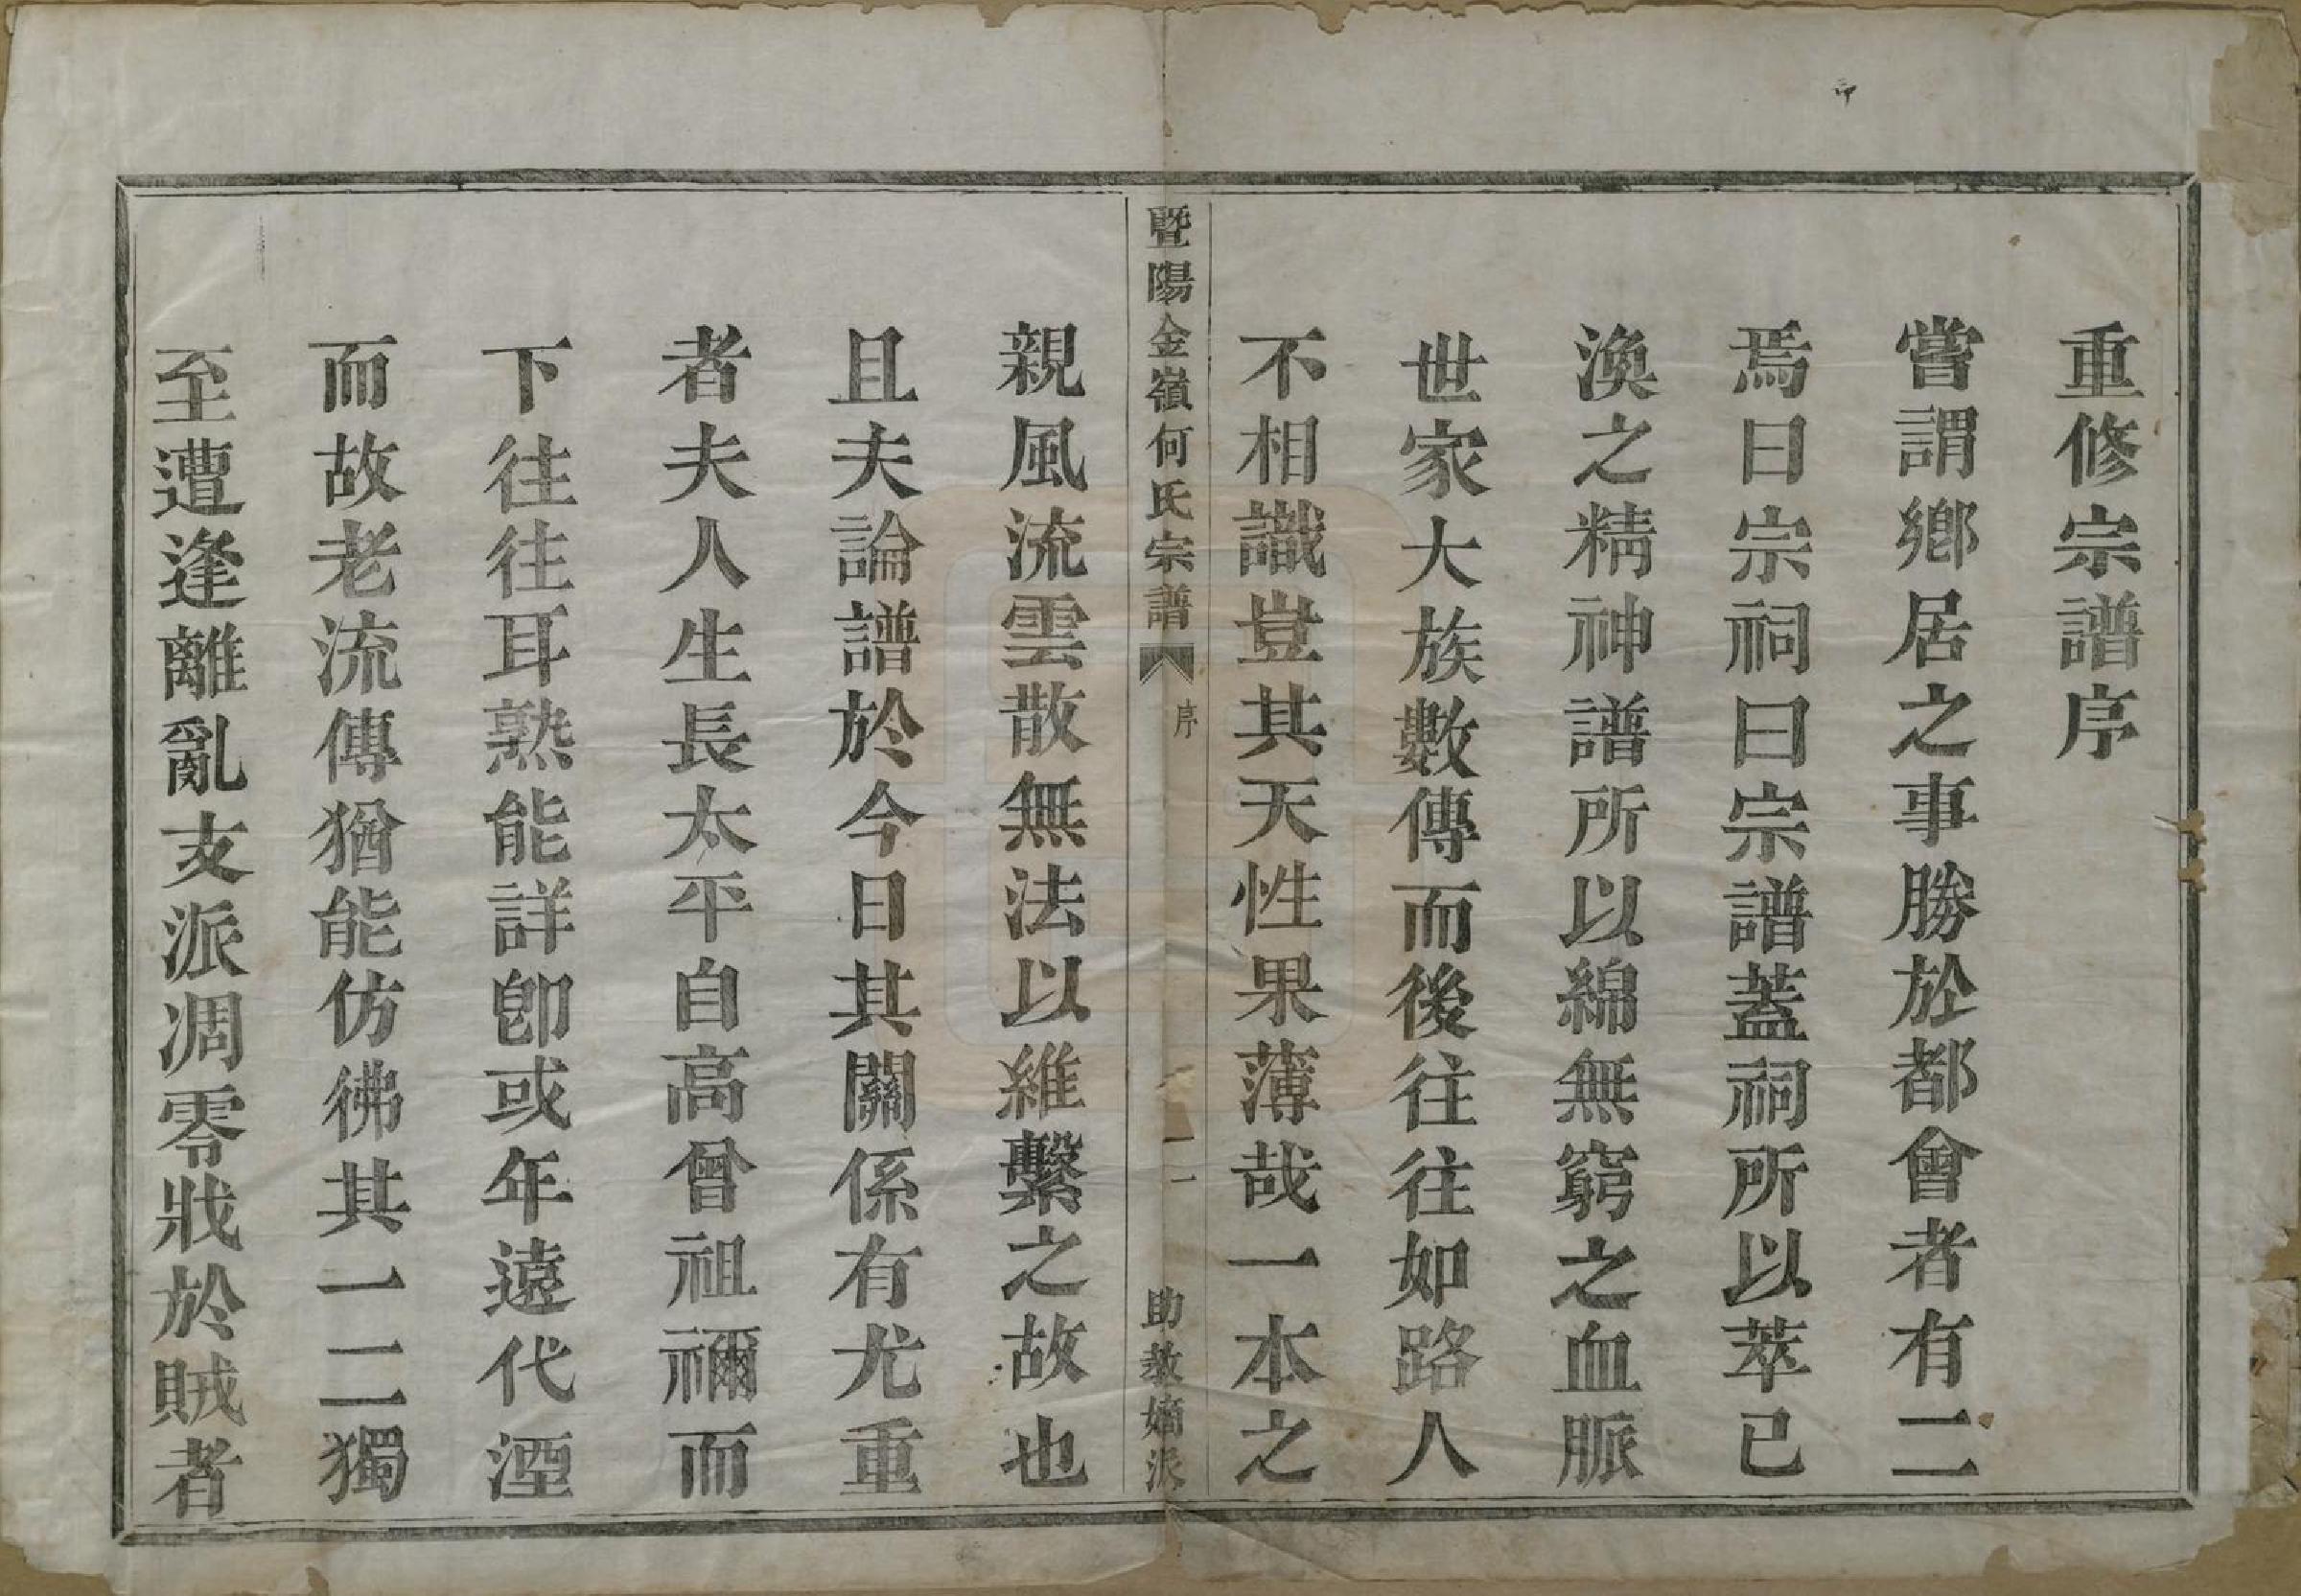 重修宗譜序
嘗謂鄉居之事勝於都會者有二
焉曰宗祠曰宗譜蓋祠所以萃已
渙之精神譜所以綿無窮之血脈
世家大族數傳而後往往如路人
不相識豈其天性果薄哉一本之
暨陽金嶺何氏宗譜
序
一
助教嫡派
親風流雲散無法以維繫之故也
且夫論譜於今日其關係有尤重
者夫人生長太平自高曾祖禰而
下往往耳熟能詳卽或年遠代湮
而故老流傳猶能仿彿其一二獨
至遭逢離亂支派凋零戕於賊者